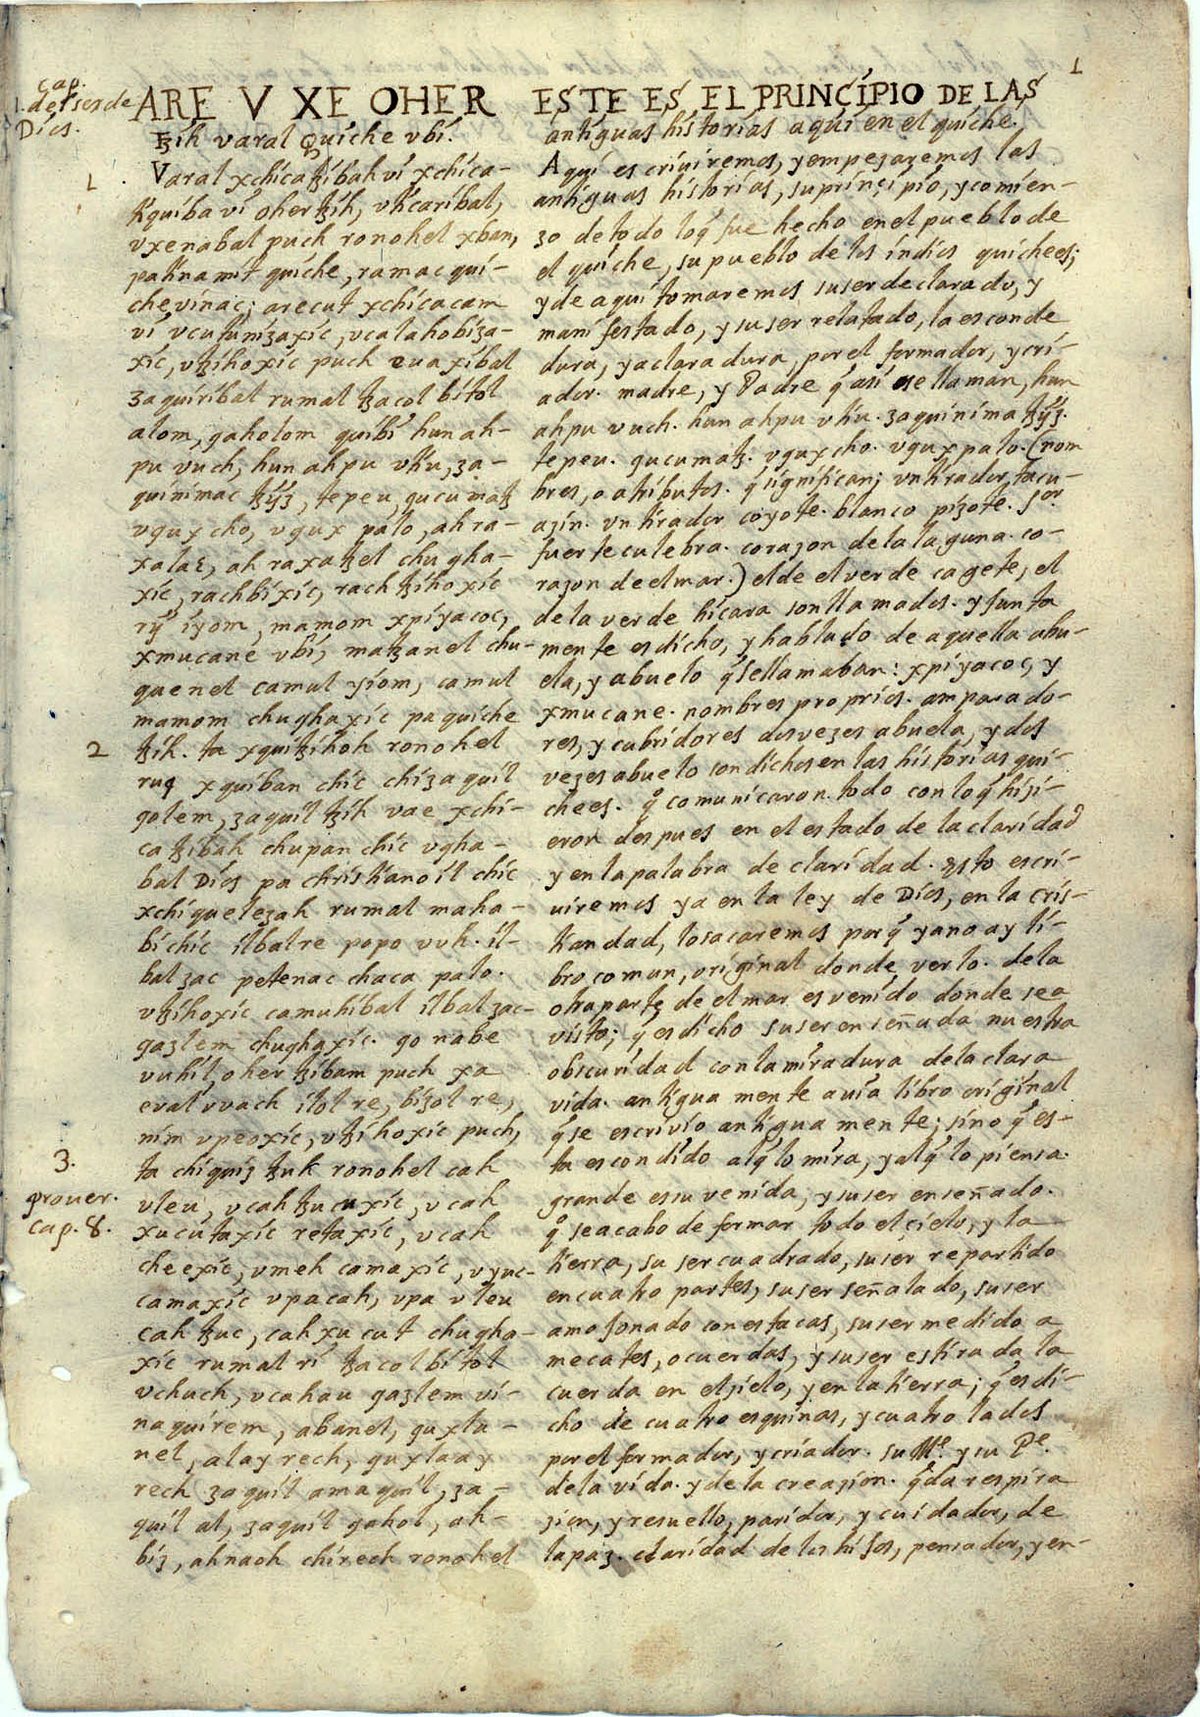 1
cap.
1. del ser de
Dios.
ARE V XE OHER
ꜩih varal Quiche ubi.
1
Varal xchicaꜩibah vi xchica-
tiquiba vi oher ꜩih, uticaribal,
uxenabal puch ronohel xban,
pa tinamit quiche, ramac qui-
che vinac; arecut xchicacam
vi ucutunizaxic, ucalahobiza-
xic, uꜩihoxic puch euaxibal
zaquiribal rumal ꜩacol bitol
alom, qaholom quibi hun ah-
pu vuch, hun ahpu utiu, za-
quinimac ꜩyz, tepeu, qucumaꜩ
uqux cho, uqux palo, ah ra-
xa lac, ah raxa ꜩel chugha-
xic, rachbixic, rach ꜩihoxic
ry iyom, mamom xpiyacoc,
xmucane ubi, maꜩanel chu-
quenel camul yiom, camul
mamom chughaxic pa quiche
2
ꜩih. ta xquiꜩihoh ronohel
ruq xquiban chic chi zaquil
qolem, zaquil ꜩih vae xchi-
caꜩibah chupan chic ugha-
bal Dios pa christianoil chic
xchiquelezah rumal maha-
bi chic ilbal re popo vuh. il-
bal zac petenac chaca palo.
uꜩihoxic camuhibal ilbal zac-
qazlem chughaxic. qo nabe
vuhil, oher ꜩibam puch xa
eval uvach ilol re, bizol re,
nim upeoxic, uꜩihoxic puch,
3.
ta chiquiz ꜩuk ronohel cah
prouer.
cap. 8.
uleu, ucah ꜩucuxic, ucah
xucutaxic retaxic, ucah
cheexic, umeh camaxic, uyuc-
camaxic upacah, upa uleu
cah ꜩuc, cah xucut chugha-
xic rumal ri ꜩacol bitol
uchuch, ucahau qazlem vi-
naquirem, abanel, quxla-
nel, alay rech, quxlaay
rech zaquil amaquil, za-
quil al, zaquil qahol, ah-
biz, ahnaoh chirech ronohel
ESTE ES EL PRINCIPIO DE LAS
antiguas historias aqui en el quiche.
Aqui escriuiremos, y empezaremos las
antiguas historias, su prinçipio, y comien-
zo de todo lo q̃ fue hecho en el pueblo de
el quiche, su pueblo de los indios quichees;
y de aqui tomaremos su ser declarado, y
manifestado, y su ser relatado, la esconde
dura, y aclaradura, por el formador, y cri-
ador. madre, y Padre q̃ asi se llaman, hun
ahpu vuch. hun ahpu utiu. zaquinima ꜩyz.
tepeu. qucumaꜩ. uqux cho. uqux palo. (nom
bres, o atributos. q̃ significan; un tirador, tacu-
azin. un tirador coyote. blanco pizote. Sor.
fuerte culebra. corazon de la laguna. co-
razon de el mar.) el de el verde cagete, el
de la verde hicara son llamados. y junta
mente es dicho, y hablado de aquella abu-
ela, y abuelo q̃ se llamaban: xpiyacoc, y
xmucane. nombres proprios. amparado-
res, y cubridores dos vezes abuela, y dos
vezes abuelo son dichos en las historias qui-
chees. q̃ comunicaron. todo con lo q̃ hizi-
eron despues en el estado de la claridad
y en la palabra de claridad. Esto escri-
uiremos ya en la ley de Dios, en la cris-
tiandad, lo sacaremos porq̃ ya no ay li-
bro comun, original donde verlo. de la
otra parte de el mar es venido donde se a
visto; q̃ es dicho su ser enseñada nuestra
obscuridad con la miradura de la clara
vida. antigua mente avia libro original
q̃ se escrivio antigua mente; sino q̃ es-
ta escondido al q̃ lo mira, y al q̃ lo piensa.
grande es su venida, y su ser enseñado.
q̃ se acabo de formar todo el çielo, y la
tierra, su ser cuadrado, su ser repartido
en cuatro partes, su ser señalado, su ser
amojonado con estacas, su ser medido a
mecates, o cuerdas, y su ser estirada la
cuerda en el zielo, y en la tierra; q̃ es di-
cho de cuatro esquinas, y cuatro lados
por el formador, y criador. su Me. y su Pe.
de la vida. y de la creazion. q̃ da respira
zion, y resuello, paridor, y cuidador, de
la paz. claridad de los hijos, pensador, y en-